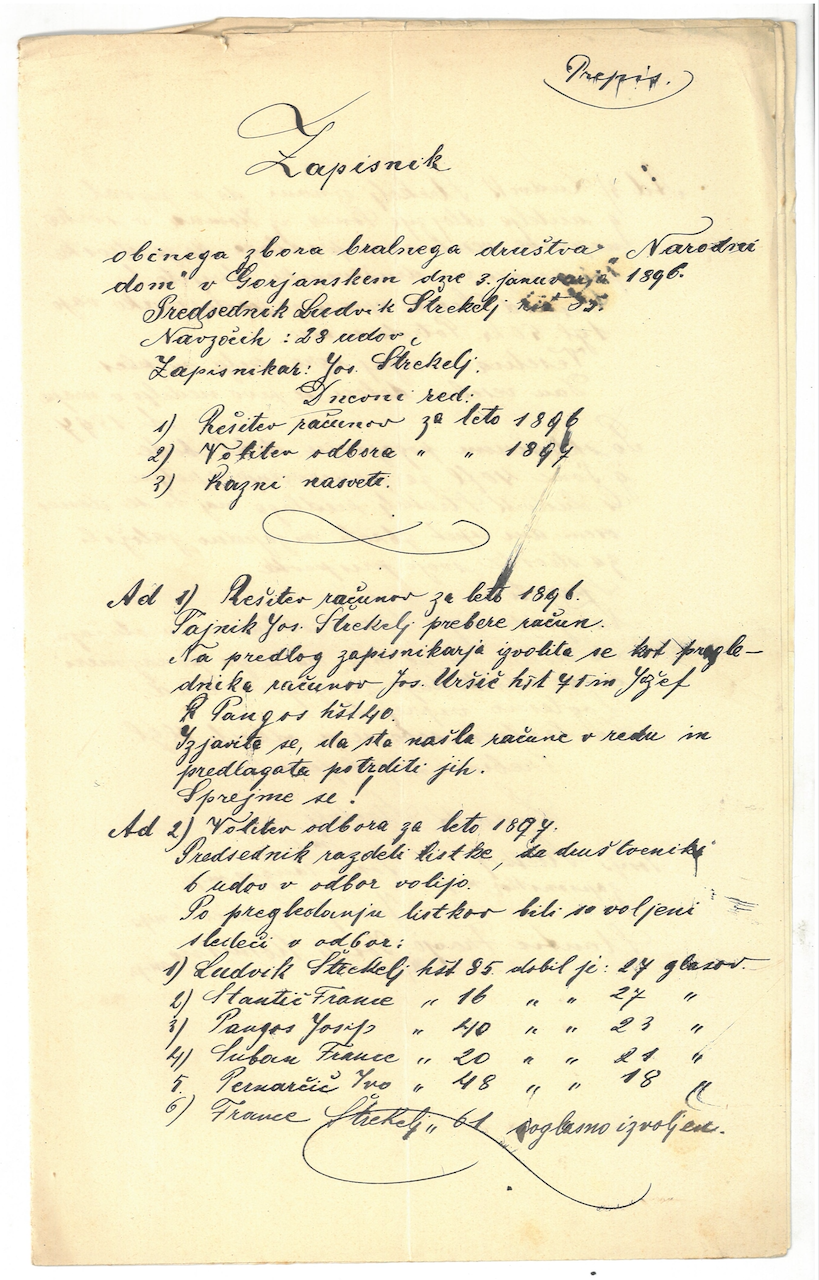 Prepis.
Zapisnik
občnega zbora bralnega društva „Narodni
dom" v Gorjanskem dne 3. januvarja 1896.
Predsednik Ludvik Štrekelj hšt 35.
Navzočih : 28 udov,
Zapisnikar: Jos. Štrekelj.
Dnevni red:
1) Rešitev računov za leto 1896
2) Volitev odbora „ „ 1897
3) Razni nasveti.
Ad 1) Rešitev računov za leto 1896.
Tajnik Jos. Štrekelj prebere račun.
Na predlog zapisnikarja izvolita se kot pregle-
dnika računov Jos. Uršič hšt 45 in Jožef
Pangos hšt 40.
Izjavita se, da sta našla račune v redu in
predlagata potrditi jih.
Sprejme se!
Ad 2) Volitev odbora za leto 1897.
Predsednik razdeli listke, da društveniki
6 udov v odbor volijo.
Po pregledanju listkov bili so voljeni
sledeči v odbor:
1) Ludvik Štrekelj hšt 35 dobil je: 27 glasov.
2) Stantič France „ 16 „ „ 27 „
3) Pangos Josip „ 40 „ „ 23 „
4) Suban France „ 20 „ „ 21 „
5. Pernarčič Ivo „ 48 „ „ 18 „
6) France Štrekelj „ 61 soglasno izvoljen.